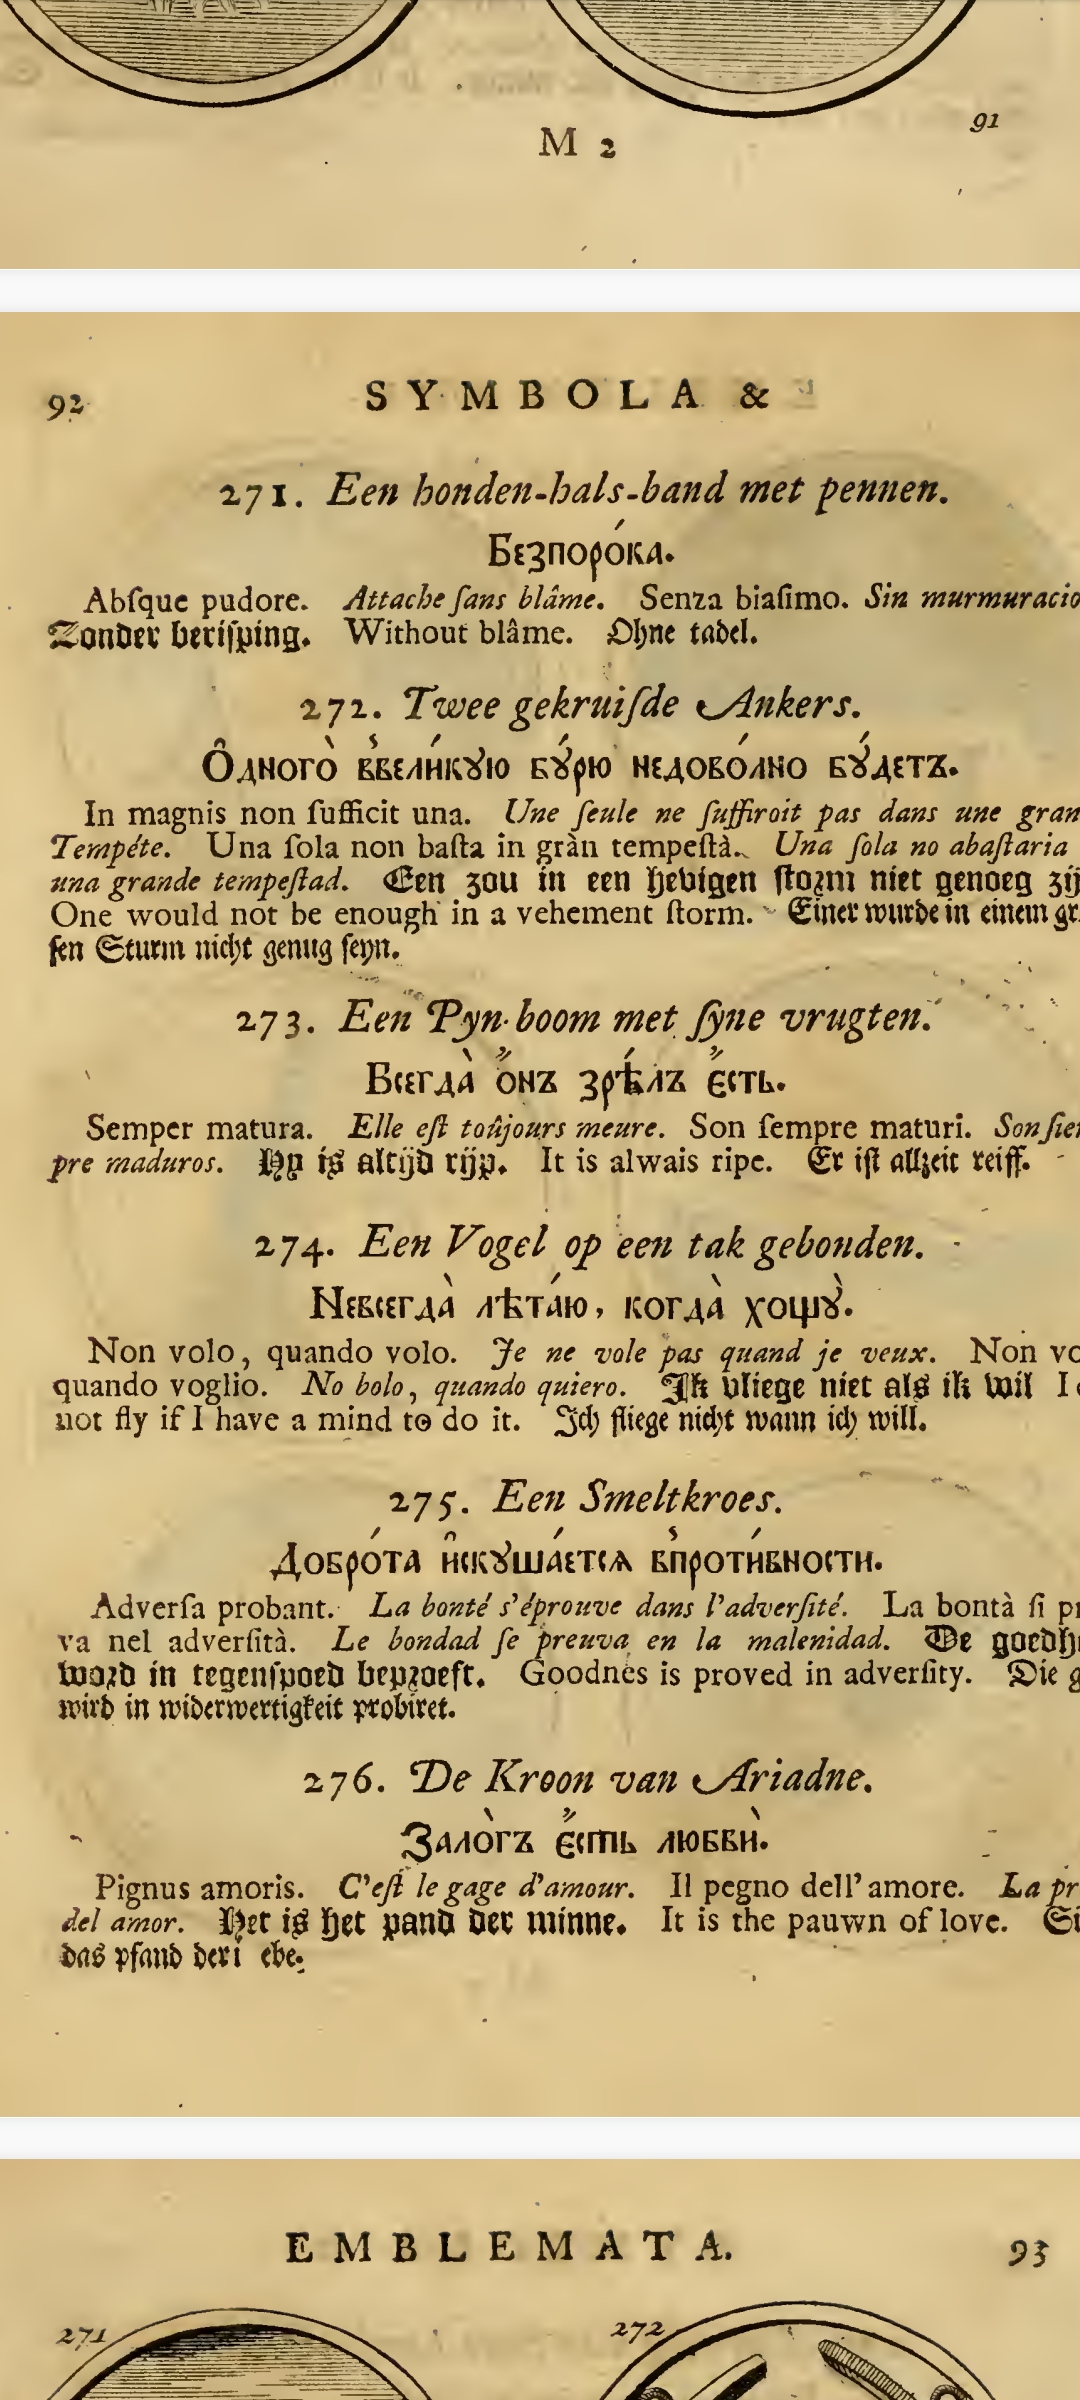 M 2
91
92
SYMBOLA &
271. Een honden-hals-band met pennen.
Безпоро́ка.
Abſque pudore. Attache ſans blâme. Senza biaſimo. Sin murmuracio
Zonder beriſping. Without blâme. Ohne tadel.
272. Twee gekruiſde Ankers.
Ѻ̑дногѡ̀ ввели́кꙋю бꙋ́рю недово́лно бꙋ́детъ.
In magnis non ſufficit una. Une ſeule ne ſuffiroit pas dans une gran
Tempéte. Una ſola non baſta in gràn tempeſtà. Una ſola no abaſtaria
una grande tempeſtad. Een zou in een hevigen ſtorm niet genoeg zij
One would not be enough in a vehement ſtorm. Einer wurde in einem gr
ſen Sturm nicht genug ſeyn.
273. Een Pyn-boom met ſyne vrugten.
Всегда̀ о҆́нъ зрѣ́лъ є҆́сть.
Semper matura. Elle eſt toûjours meure. Son ſempre maturi. Son ſie
pre maduros. Hy is altijd rijp. It is alwais ripe. Er iſt allzeit reiff.
274. Een Vogel op een tak gebonden.
Невсегда̀ лѣта́ю, когда̀ хощꙋ̀.
Non volo, quando volo. Je ne vole pas quand je veux. Non vo
quando voglio. No bolo, quando quiero. Ik vliege niet als ik wil I
not fly if I have a mind to do it. Ich fliege nicht wann ich will.
275. Een Smeltkroes.
Добро́та и҆скꙋша́етсѧ впроти́вности.
Adverſa probant. La bonté s'éprouve dans l'adverſité. La bontà ſi pr
va nel adverſità. Le bondad ſe preuva en la malenidad. De goedh
word in tegenſpoed beproeft. Goodnes is proved in adverſity. Die g
wird in widerwertigkeit probiret.
276. De Kroon van Ariadne.
Зало̀гъ є҆́сть любви̇̀.
Pignus amoris. C'eſt le gage d'amour. Il pegno dell' amore. La pr
del amor. Het is het pand der minne. It is the pauwn of love.
das pfand der ebe.
EMBLEMATA.
93
271
272